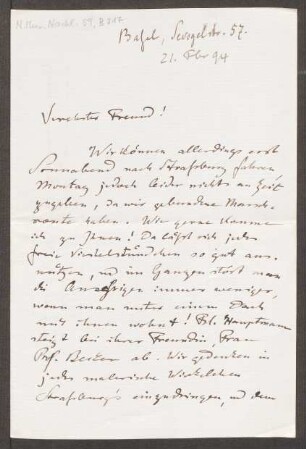 N. Mus. Nachl. 59, B 217
Basel, Seevogelstr. 57.
21. Fbr 94
Verehrter Freund!
Wir können allerdings erst
Sonnabend nach Strassburg fahren
Montag jedoch leider nichts an Zeit
zugeben, da wir gebundene Marsch-
route haben. Wie gerne komme
ich zu Ihnen! Da lässt sich jedes
freie Viertelstündchen so gut aus-
nützen, und im Ganzen stört man
die Angehörigen immer weniger,
wenn man unter einem Dach
mit ihnen wohnt! Frl. Hauptmann
steigt bei ihrer Freundin Frau
Prof. Becker ab. Wir gedenken in
jedes malerische Winkelchen
Strassburg's einzudringen, und dem